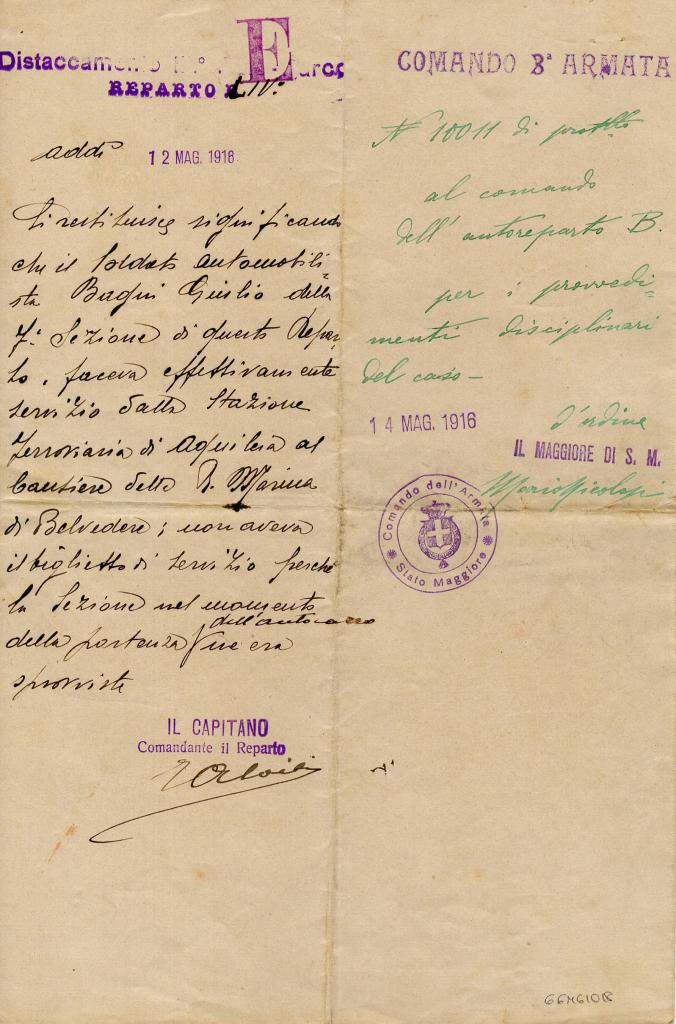 E
Distaccamento
REPARTO LIV°
addì 12 MAG. 1916
Si restituisce significando
che il soldato automobili-
sta Bagni Giulio della
7ª Sezione di questo Repar-
to, faceva effettivamente
servizio dalla Stazione
Ferroviaria di Aquileia al
Cantiere della R. Marina
di Belvedere; non aveva
il biglietto di servizio perchè
la Sezione nel momento
dell'autocarro
della partenza ne era
sprovvista
IL CAPITANO
Comandante il Reparto
COMANDO 3ª ARMATA
N 10011 di protllo
al comando
dell'autoreparto B.
per i provvedi-
menti disciplinari
del caso -
14 MAG. 1916 d'ordine
IL MAGGIORE DI S. M.
Comando dell'Armata
Stato Maggiore